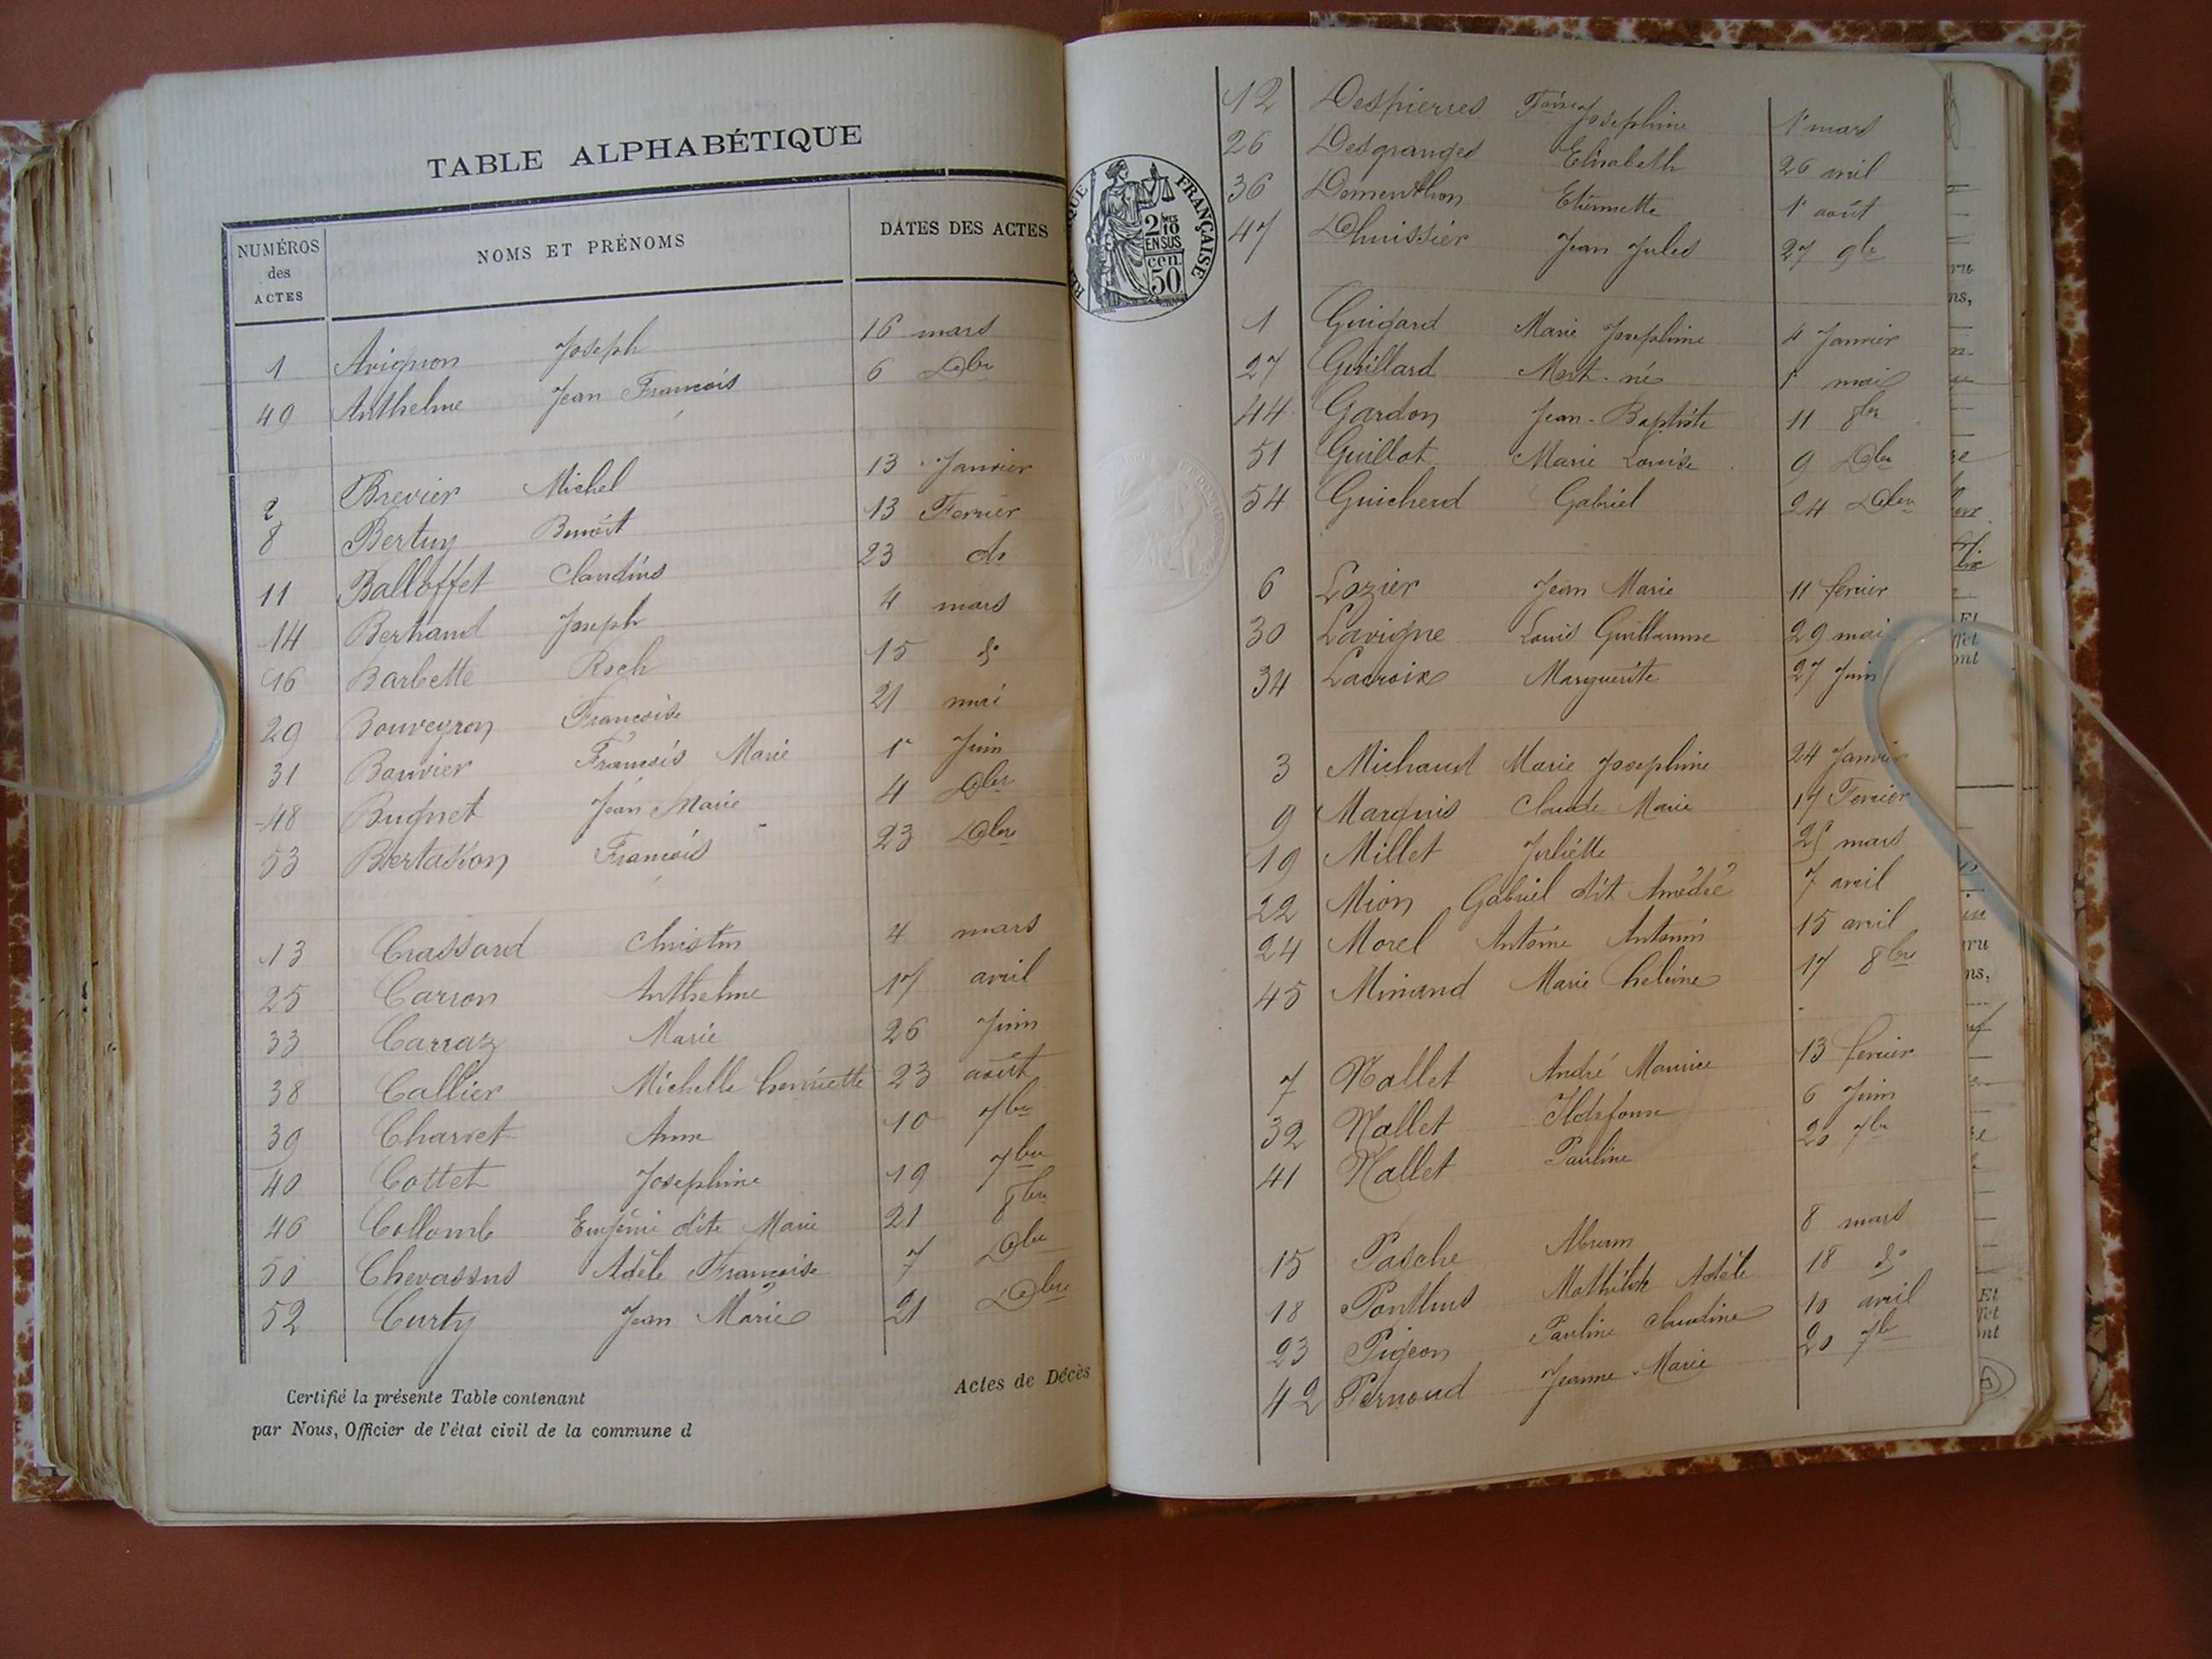 TABLE ALPHABÉTIQUE
NUMÉROS des ACTES NOMS ET PRÉNOMS DATES DES ACTES
1 Avignon Joseph 16 mars
49 Anthelme Jean François 6 Xbre
2 Brevier Michel 13 Janvier
8 Bertuy Benoit 13 Fevrier
11 Balloffet Claudius 23 do
14 Bertrand Joseph 4 mars
16 Barbette Roch 15 do
29 Bouveyron Françoise 21 mai
31 Bouvier François Marie 1r Juin
48 Bugnet Jean Marie 4 Xbre
53 Bertasson François 23 Xbre
13 Crassard Christin 4 mars
25 Carron Anthelme 17 avril
33 Carraz Marie 26 Juin
38 Callier Michelle henriette 23 août
39 Charvet Anne 10 7bre
40 Cottet Josephine 19 7bre
46 Collomb Eugénie dite Marie 21 8bre
50 Chevassus Adèle Françoise 7 Xbre
52 Curty Jean Marie 21 Xbre
Certifié la présente Table contenant Actes de Décès
par Nous, Officier de l'état civil de la commune d
RÉPUBLIQUE FRANÇAISE
2/10 EN SUS
cen. 50
12 Despierres Josephine 1r mars
26 Desgranges Elisabeth 26 avril
36 Dementhon Etiennette 1r août
47 Dhuissier Jean Jules 27 9bre
1 Guigard Marie Josephine 4 Janvier
27 Guillard Mort-né 1r mai
44 Gardon Jean-Baptiste 11 8bre
51 Guillot Marie Louise 9 Xbre
54 Guicherd Gabriel 24 Xbre
6 Lozier Jean Marie 11 fevrier
30 Lavigne Louis Guillaume 29 mai
34 Lacroix Marguerite 27 Juin
3 Michaud Marie Josephine 24 Janvier
9 Marquis Claude Marie 17 Fevrier
19 Millet Juliette mars
22 Mion Gabriel dit Amédée 7 avril
24 Morel Antoine Antonin 15 avril
45 Minand Marie heleine 17 8bre
7 Nallet André Maurice 13 fevrier
32 Nallet Ildefonse 6 Juin
41 Nallet Pauline 20 7bre
15 Pasche Abram 8 mars
18 Ponthus Mathilde Adèle 18 do
23 Pigeon Pauline Claudine 10 avril
42 Pernoud Jeanne-Marie 20 7bre